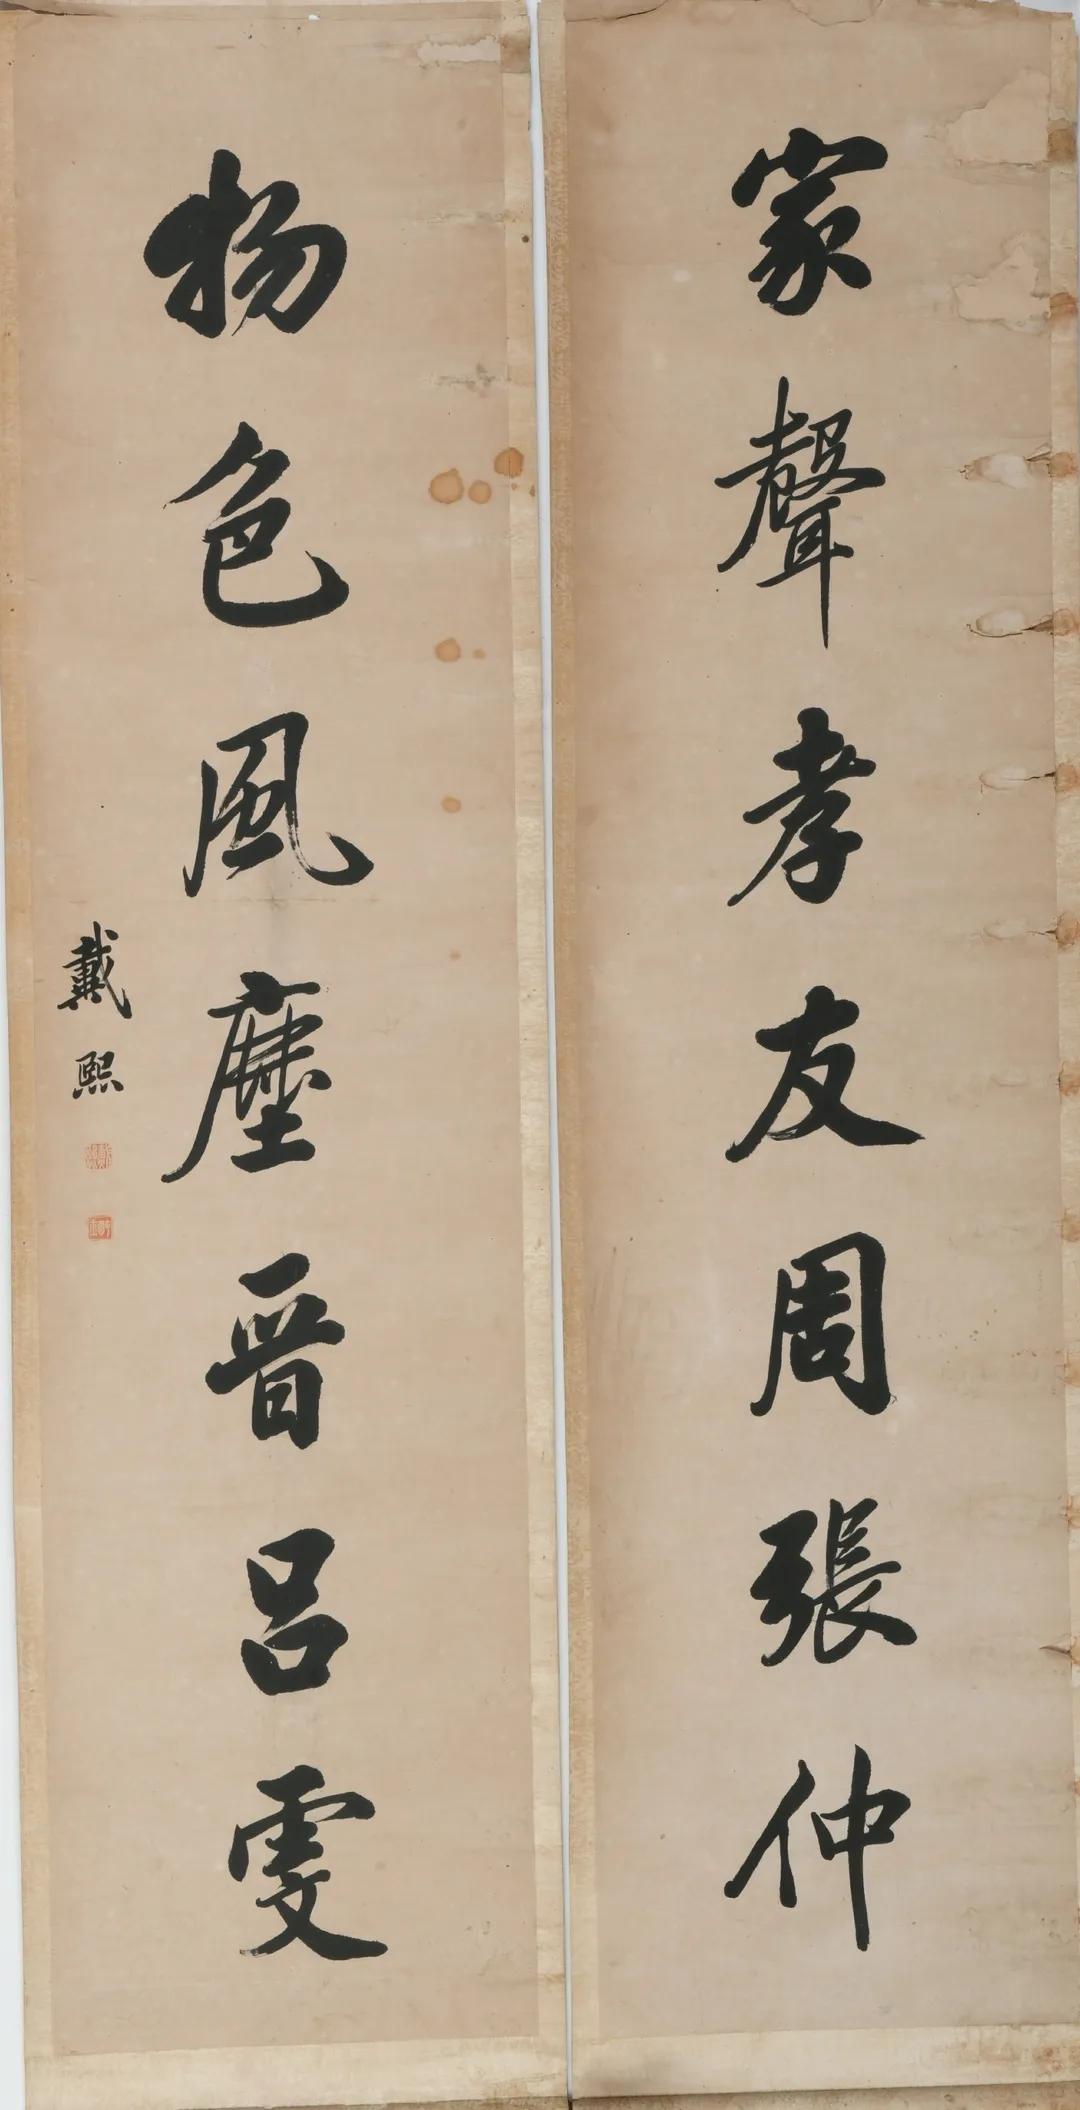 家聲孝友周張仲
物色風塵晉呂雯
戴熙